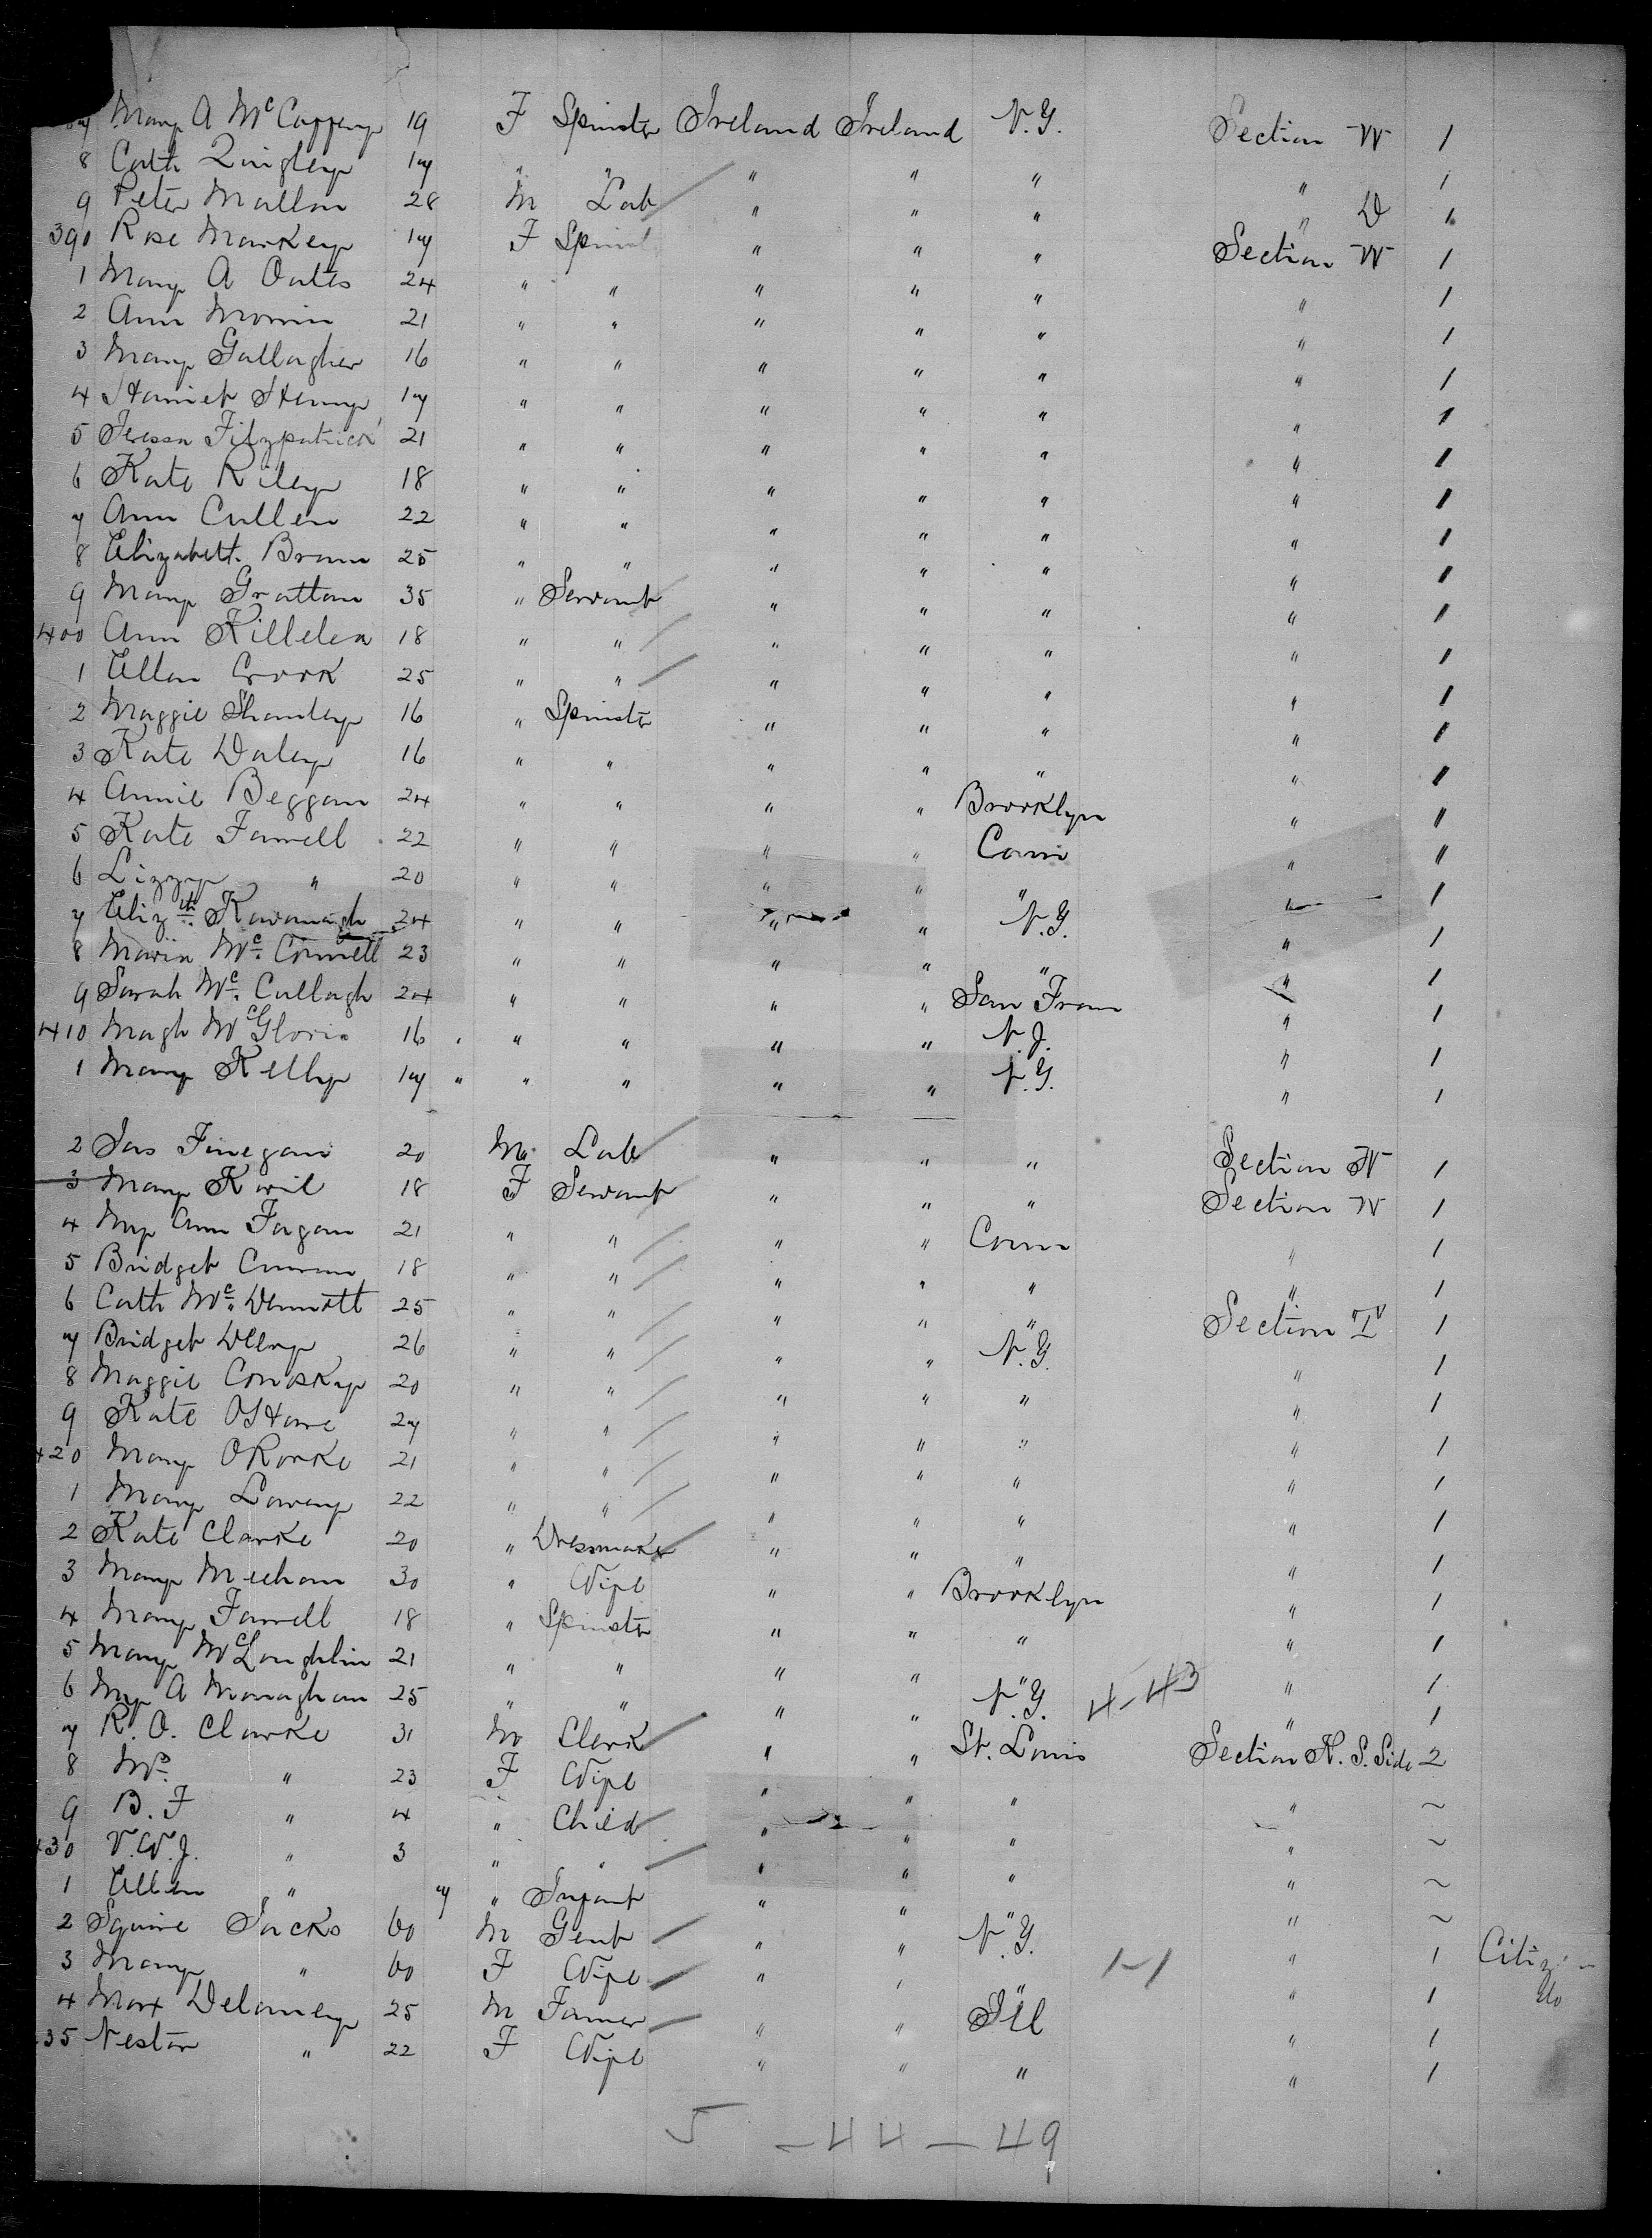 Mary A McCaffery 19 F Spinster Ireland Ireland N.Y. Section W 1
8 Cath Quigley 17 " " " " " " 1
9 Peter Mallon 28 M Lab " " " " D 1
390 Rose Markey 17 F Spinst " " " Section W 1
1 Mary A Oates 24 " " " " " " 1
2 Ann Morrin 21 " " " " " " 1
3 Mary Gallagher 16 " " " " " " 1
4 Harriet Henry 17 " " " " " " 1
5 Teressa Fitzpatrick 21 " " " " " " 1
6 Kate Riley 18 " " " " " " 1
7 Ann Cullen 22 " " " " " " 1
8 Elizabeth Brown 25 " " " " " " 1
9 Mary Grattan 35 " Servant " " " " 1
400 Ann Killelea 18 " " " " " " 1
1 Ellen Crook 25 " " " " " " 1
2 Maggie Shanley 16 " Spinster " " " " 1
3 Kate Daley 16 " " " " " " 1
4 Annie Beggan 24 " " " " Brooklyn " 1
5 Kate Farrell 22 " " " " Conn " 1
6 Lizzy " 20 " " " " " " 1
7 Elizth Kavanagh 24 " " " " N.Y. " 1
8 Maria Mc Connell 23 " " " " " " 1
9 Sarah Mc Cullagh 24 " " " " San Fran " 1
410 Magh McGloris 16 " " " " N.J. " 1
1 Mary Kelly 17 " " " " " N.Y. " 1
2 Jas Finegan 20 M Lab " " " Section N 1
3 Mary Kavil 18 F Servant " " " Section W 1
4 My Ann Fagan 21 " " " " Conn " 1
5 Bridget Curran 18 " " " " " " 1
6 Cath Mc Dermott 25 " " " " " Section I 1
7 Bridget 26 " " " " N.Y. " 1
8 Maggie Conoskey 20 " " " " " " 1
9 Kate O'Hare 27 " " " " " " 1
420 Mary O'Rorke 21 " " " " " " 1
1 Mary Lavery 22 " " " " " " 1
2 Kate Clarke 20 " Dressmaker " " " " 1
3 Mary Meehan 30 " Wife " " Brooklyn " 1
4 Mary Farrell 18 " Spinster " " " " 1
5 Mary McLoughlin 21 " " " " " " 1
6 My A Monaghan 25 " " " " N.Y. 4-43 " 1
7 R. O. Clarke 31 M Clerk " " St. Louis Section N. S. Side 2
8 Mrs " 23 F Wife " " " " ~
9 B. F " 4 " Child " " " " ~
430 V.W.J. " 3 " " " " " " ~
1 Ellen " 7 " Infant " " " " ~
2 Squire Jacks 60 M Gent " " N.Y. " 1 Citiz
3 Mary " 60 F Wife " " " 1-1 " 1 do
4 Max Delaney 25 M Farmer " " Ill " 1
435 Nestor " 22 F Wife " " " " 1
5 - 44 - 49